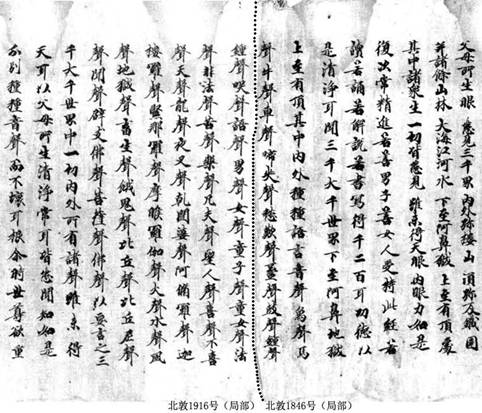 父母所生眼 悉見三千界 內外弥樓山 須弥及鐵圍
并諸餘山林 大海江河水 下至阿鼻獄 上至有頂處
其中諸衆生 一切皆悉見 雖未得天眼 肉眼力如是
復次常精進若善男子善女人受持此經若
讀若誦若解說若書寫得千二百耳功德以
是清淨耳聞三千大千世界下至阿鼻地獄
上至有頂其中內外種種語言音聲象聲馬
聲牛聲車聲啼哭聲愁歎聲螺聲鼓聲鍾聲
鈴聲咲聲語聲男聲女聲童子聲童女聲法
聲非法聲苦聲樂聲凡夫聲聖人聲喜聲不喜
聲天聲龍聲夜叉聲乾闥婆聲阿脩羅聲迦
樓羅聲緊那羅聲摩睺羅伽聲火聲水聲風
聲地獄聲畜生聲餓鬼聲比丘聲比丘尼聲
聲聞聲辟支佛聲菩薩聲佛聲以要言之三
千大千世界中一切內外所有諸聲雖未得
天耳以父母所生清淨常耳皆悉聞知如是
分別種種音聲而不壞耳根尒時世尊欲重
北敦1916号（局部） 北敦1846号（局部）